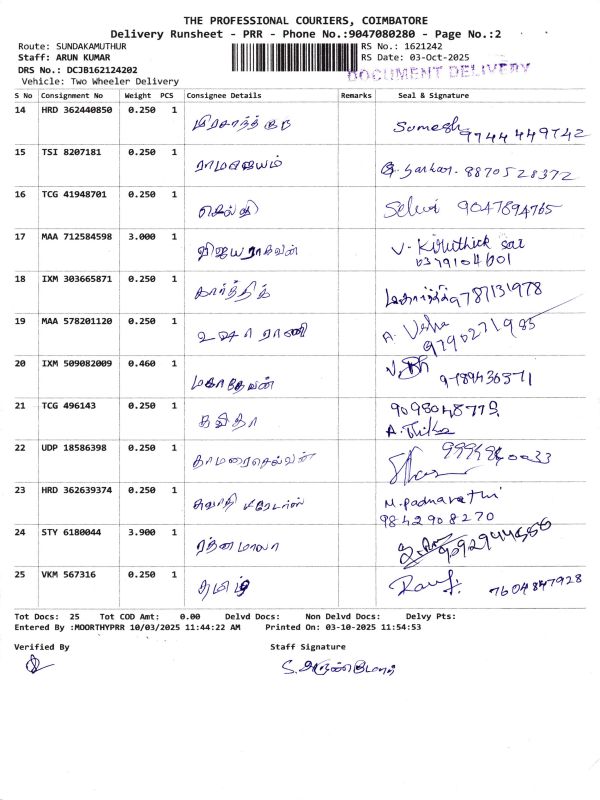 THE PROFESSIONAL COURIERS, COIMBATORE
Delivery Runsheet - PRR - Phone No.:9047080280 - Page No.:2
Route: SUNDAKAMUTHUR RS No.: 1621242
Staff: ARUN KUMAR RS Date: 03-Oct-2025
DRS No.: DCJB162124202 DOCUMENT DELIVERY
Vehicle: Two Wheeler Delivery
S No Consignment No Weight PCS Consignee Details Remarks Seal & Signature
14 HRD 362440850 0.250 1
Somesh 9744449742
15 TSI 8207181 0.250 1
ராமஜெயம் G. Sankar. 8870528372
16 TCG 41948701 0.250 1
செல்வி Selvi 9047894765
17 MAA 712584598 3.000 1
விஜய ராகவன் V. Kiruthick sai
18 IXM 303665871 0.250 1
கார்த்திக் 9787131978
19 MAA 578201120 0.250 1
உஷா ராணி A. Usha
9790271985
20 IXM 509082009 0.460 1
மகாதேவன்
21 TCG 496143 0.250 1
கவிதா
22 UDP 18586398 0.250 1
தாமரைசெல்வன்
23 HRD 362639374 0.250 1
சுவாதி M. Padmavathi
9842908270
24 STY 6180044 3.900 1
ரத்னமாலா
25 VKM 567316 0.250 1
தமிழ் 7604847928
Tot Docs: 25 Tot COD Amt: 0.00 Delvd Docs: Non Delvd Docs: Delvy Pts:
Entered By :MOORTHYPRR 10/03/2025 11:44:22 AM Printed On: 03-10-2025 11:54:53
Verified By Staff Signature